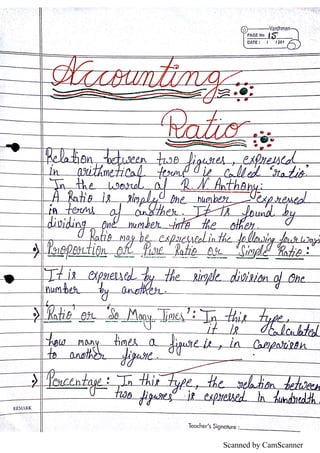 Vardhman
PAGE No. 15
DATE: / /201
Accounting
Ratio
Relation between two figures, expressed
in arithmetical terms is called "ratio".
In the word of R.N Anthony:
A Ratio is simply one number expressed
in terms of another. It is found by
dividing one number into the other.
Ratio may be expressed in the following four ways
Proportion or Pure Ratio or Simple Ratio:
It is expressed by the simple division of one
number by another.
'Ratio' or 'So Many Times': In this type,
it is calculated
how many times a figure is, in comparison
to another figure.
Percentage: In this type, the relation between
two figures is expressed in hundredth.
REMARK
Teacher's Signature:
Scanned by CamScanner